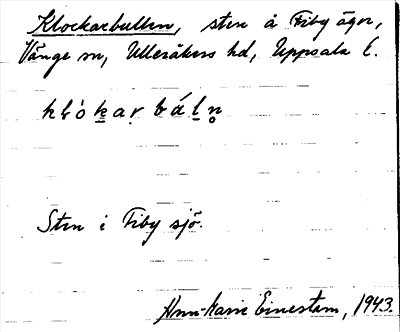 Klockarbullen, sten å Fiby ägor,
Vänge sn, Ulleråkers hd, Uppsala l.
klo̔ḵaṛ bál̲n̥
Sten i Fiby sjö.
Ann-Marie Einestam, 1943.